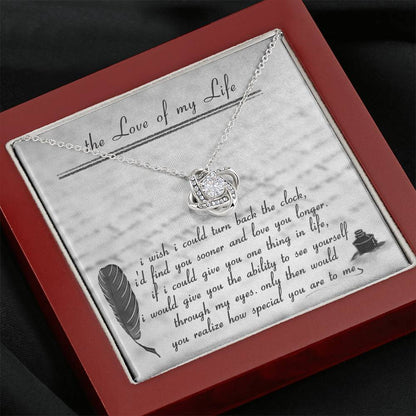 the Love of my Life
i wish i could turn back the clock,
i'd find you sooner and love you longer.
if i could give you one thing in life,
i would give you the ability to see yourself
through my eyes. only then would
you realize how special you are to me